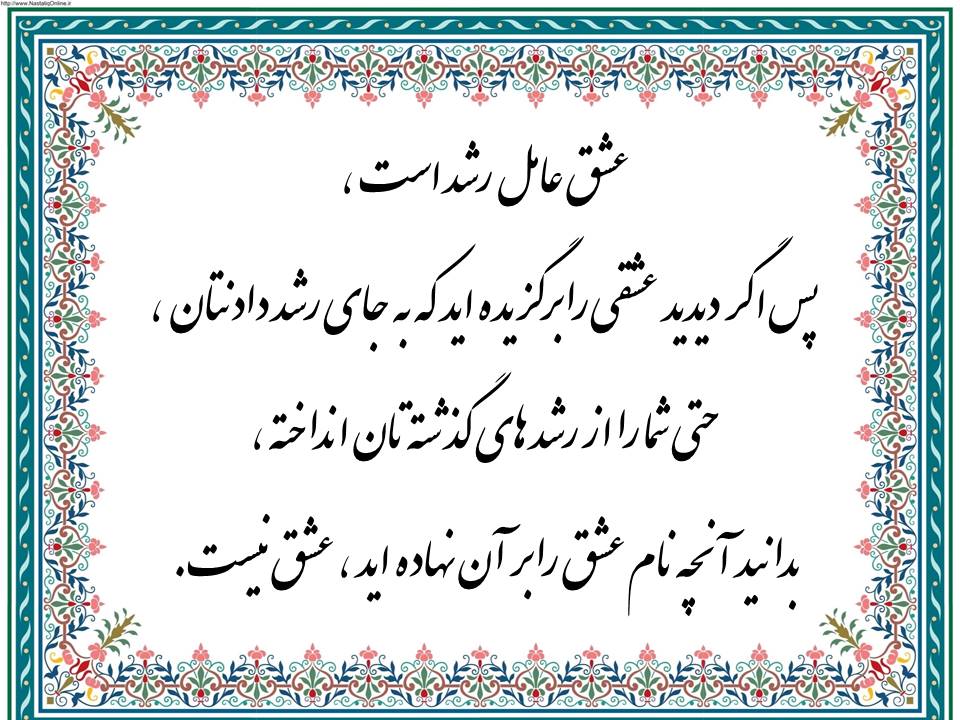 http://www.NastaliqOnline.ir
عشق عامل رشد است ،
پس اگر دیدید عشقی را برگزیده اید که به جای رشد دادنتان ،
حتی شما را از رشد های گذشته تان انداخته ،
بدانید آنچه نام عشق را بر آن نهاده اید ، عشق نیست.